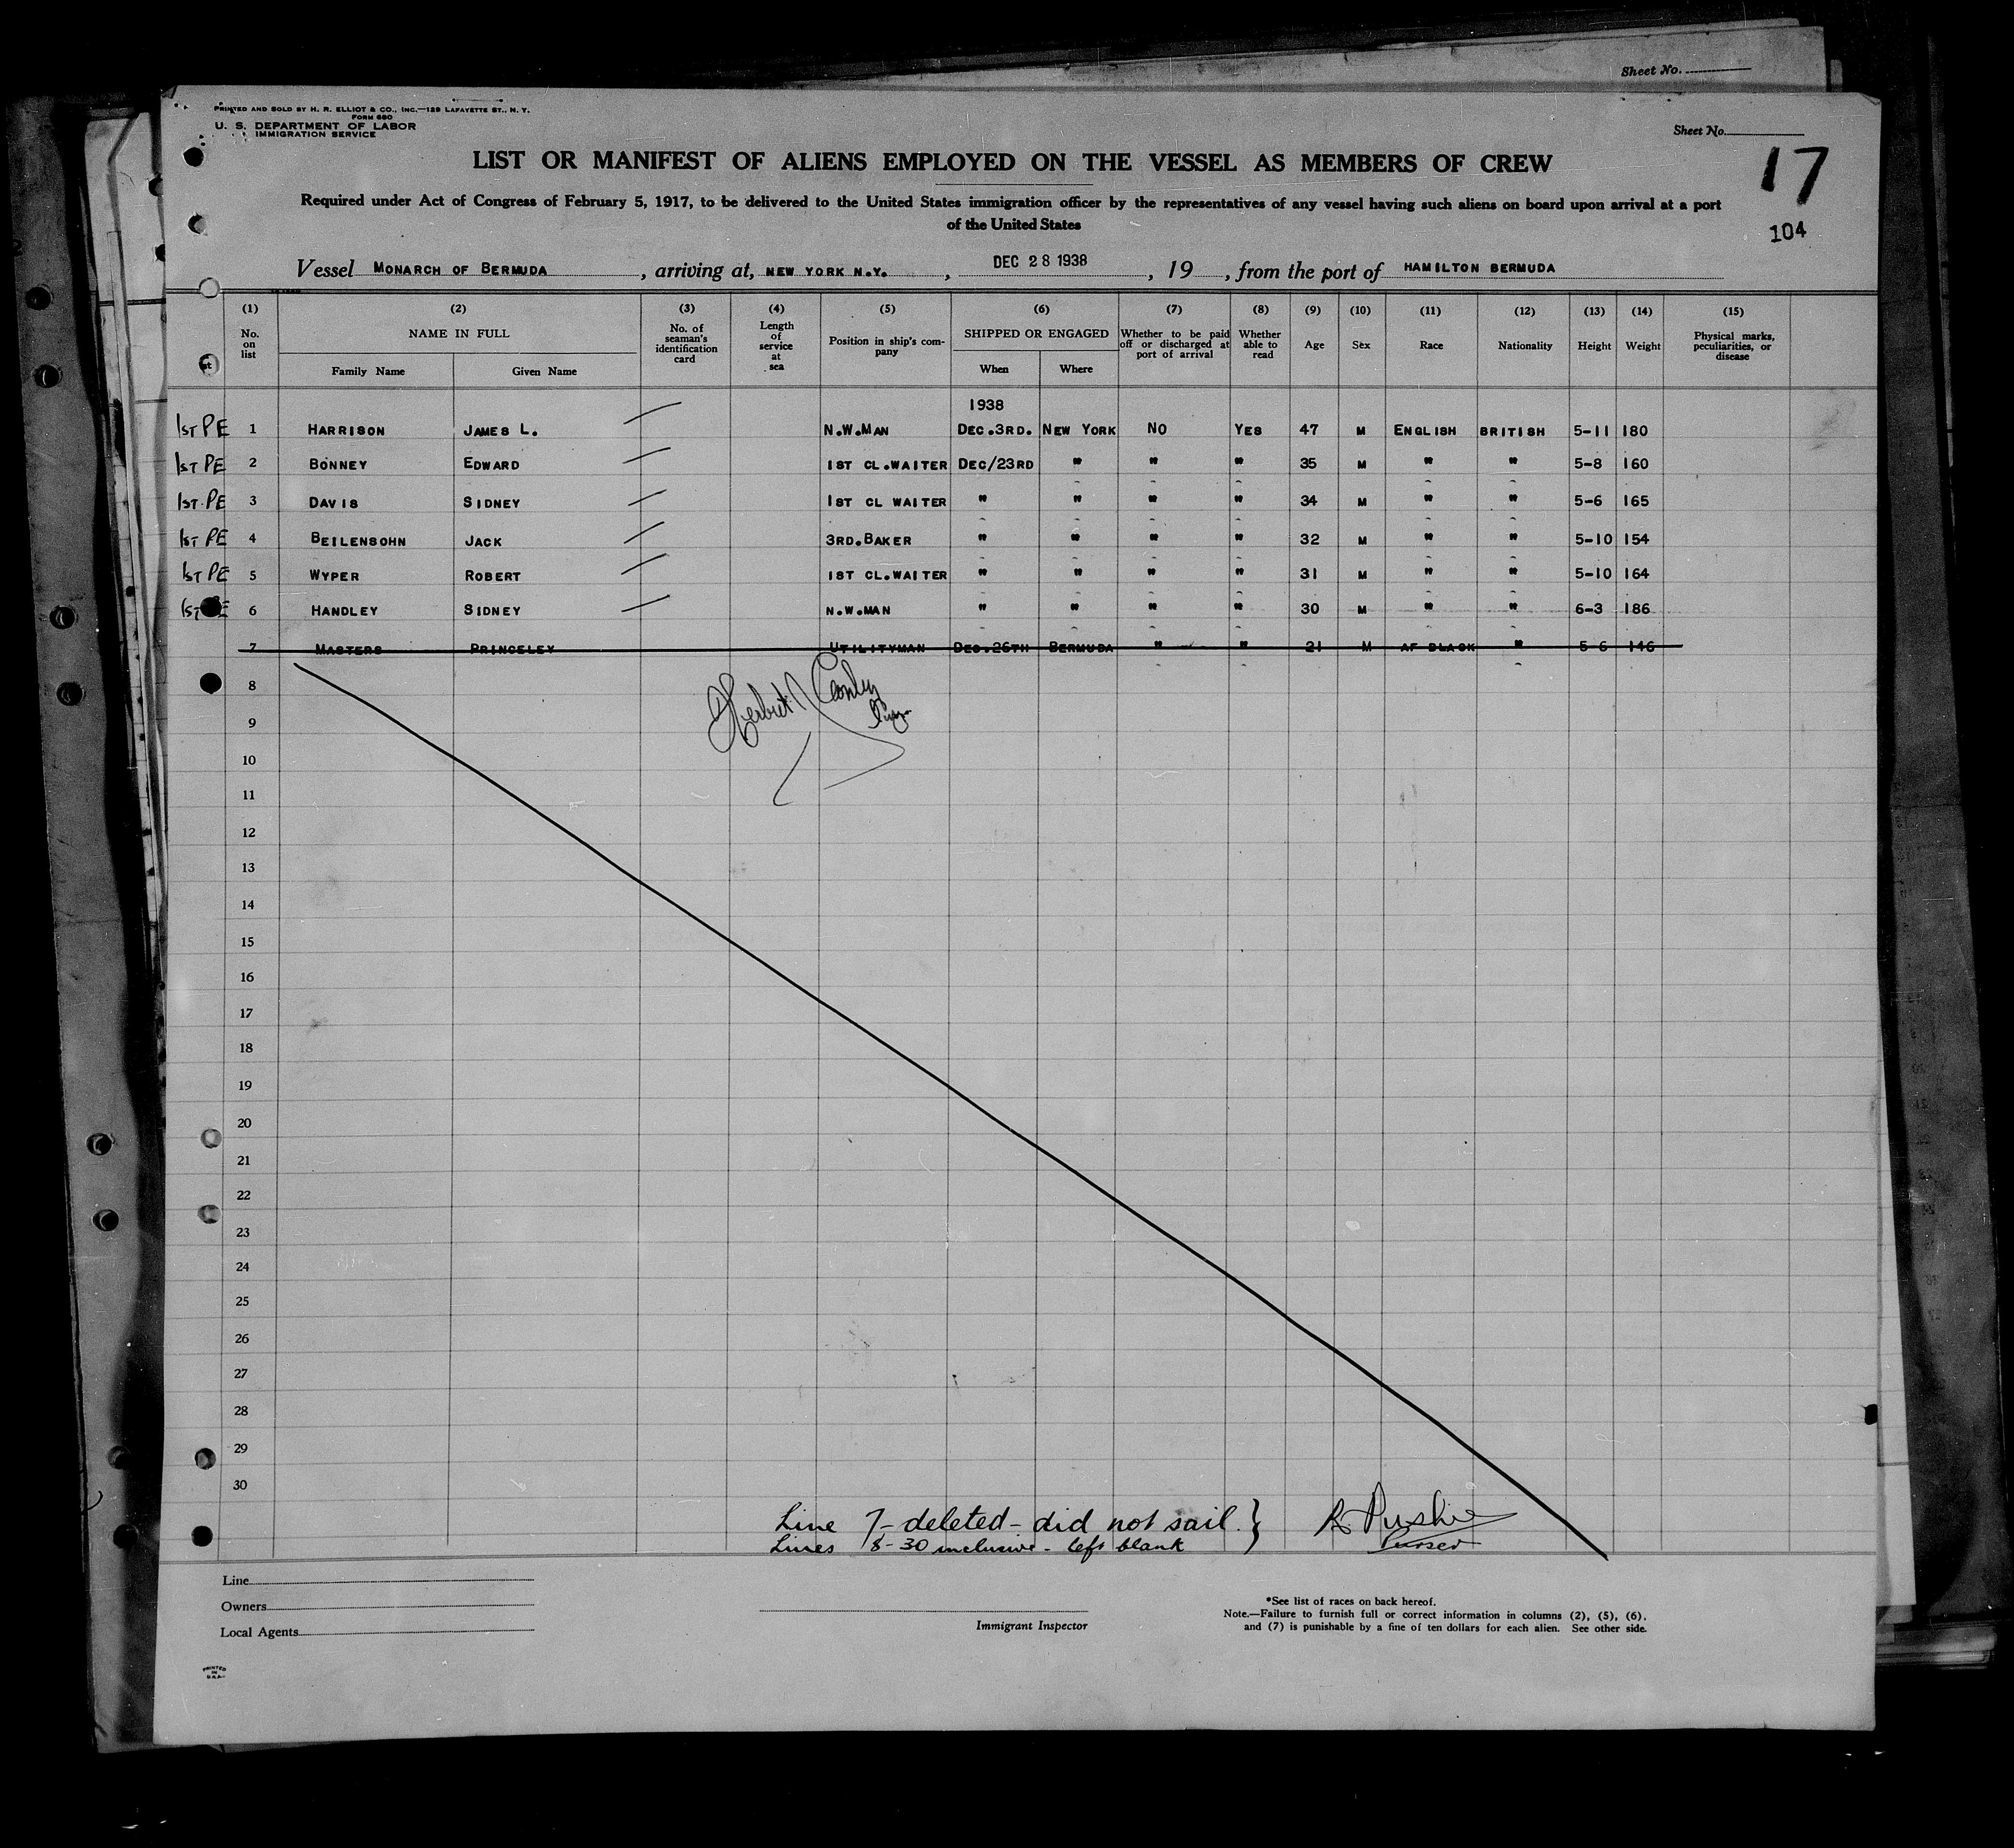 Sheet No.
PRINTED AND SOLD BY H. R. ELLIOT & CO., INC.—129 LAFAYETTE ST., N. Y.
FORM 680
U. S. DEPARTMENT OF LABOR
IMMIGRATION SERVICE
Sheet No.
LIST OR MANIFEST OF ALIENS EMPLOYED ON THE VESSEL AS MEMBERS OF CREW
17
Required under Act of Congress of February 5, 1917, to be delivered to the United States immigration officer by the representatives of any vessel having such aliens on board upon arrival at a port
of the United States
104
Vessel MONARCH OF BERMUDA, arriving at, NEW YORK N.Y., DEC 28 1938, 19, from the port of HAMILTON BERMUDA
(1) (2) (3) (4) (5) (6) (7) (8) (9) (10) (11) (12) (13) (14) (15)
No. on list NAME IN FULL Family Name Given Name No. of seaman's identification card Length of service at sea Position in ship's company SHIPPED OR ENGAGED When Where Whether to be paid off or discharged at port of arrival Whether able to read Age Sex Race Nationality Height Weight Physical marks, peculiarities, or disease
1938
1ST PE 1 HARRISON JAMES L. N.W.MAN DEC.3RD. NEW YORK NO YES 47 M ENGLISH BRITISH 5-11 180
1ST PE 2 BONNEY EDWARD 1ST CL.WAITER DEC/23RD " " " 35 M " " 5-8 160
1ST PE 3 DAVIS SIDNEY 1ST CL WAITER " " " " 34 M " " 5-6 165
1ST PE 4 BEILENSOHN JACK 3RD.BAKER " " " " 32 M " " 5-10 154
1ST PE 5 WYPER ROBERT 1ST CL.WAITER " " " " 31 M " " 5-10 164
1ST PE 6 HANDLEY SIDNEY N.W.MAN " " " " 30 M " " 6-3 186
7 MASTERS PRINCELEY UTILITYMAN DEC.26TH BERMUDA " " 21 M AF BLACK " 5-6 146
8
9
10
11
12
13
14
15
16
17
18
19
20
21
22
23
24
25
26
27
28
29
30
Line 7 - deleted - did not sail. }
Lines 8-30 inclusive - left blank
Purser
Line
Owners
Local Agents
Immigrant Inspector
*See list of races on back hereof.
Note.—Failure to furnish full or correct information in columns (2), (5), (6),
and (7) is punishable by a fine of ten dollars for each alien. See other side.
PRINTED
IN
U.S.A.